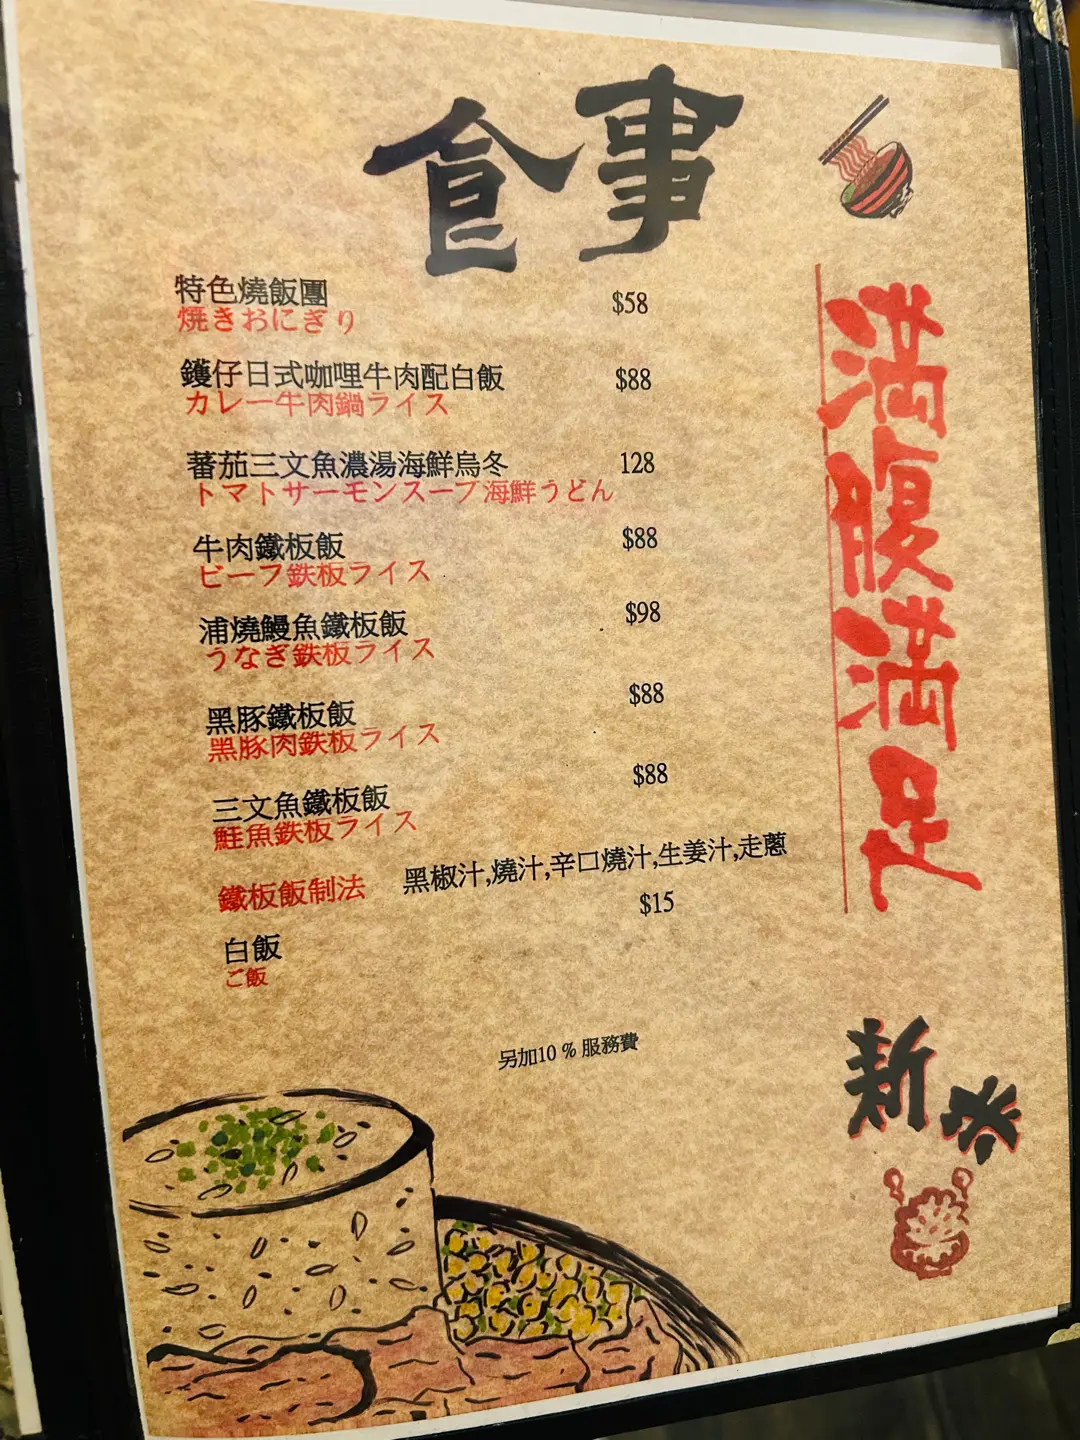 食事
特色燒飯團 $58
焼きおにぎり
鑊仔日式咖哩牛肉配白飯 $88
カレー牛肉鍋ライス
蕃茄三文魚濃湯海鮮烏冬 128
トマトサーモンスープ海鮮うどん
牛肉鐵板飯 $88
ビーフ鉄板ライス
浦燒鰻魚鐵板飯 $98
うなぎ鉄板ライス
黑豚鐵板飯 $88
黑豚肉鉄板ライス
三文魚鐵板飯 $88
鮭魚鉄板ライス
鐵板飯制法 黑椒汁,燒汁,辛口燒汁,生姜汁,走蔥
白飯 $15
ご飯
另加10 % 服務費
満腹満足
新